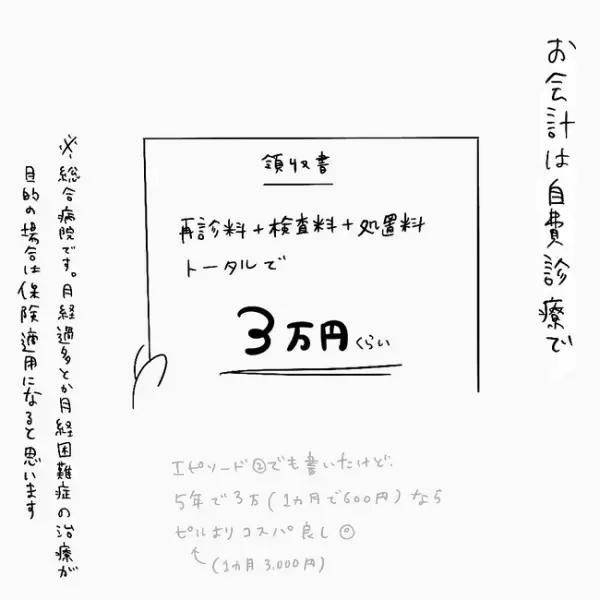 お会計は自費診療で
領収書
再診料+検査料+処置料
トータルで
3万円くらい
※総合病院です。月経過多とか月経困難症の治療が
目的の場合は保険適用になると思います
エピソード②でも書いたけど、
5年で3万(1ヵ月で600円)なら
ピルよりコスパ良し◎
(1ヵ月3,000円)